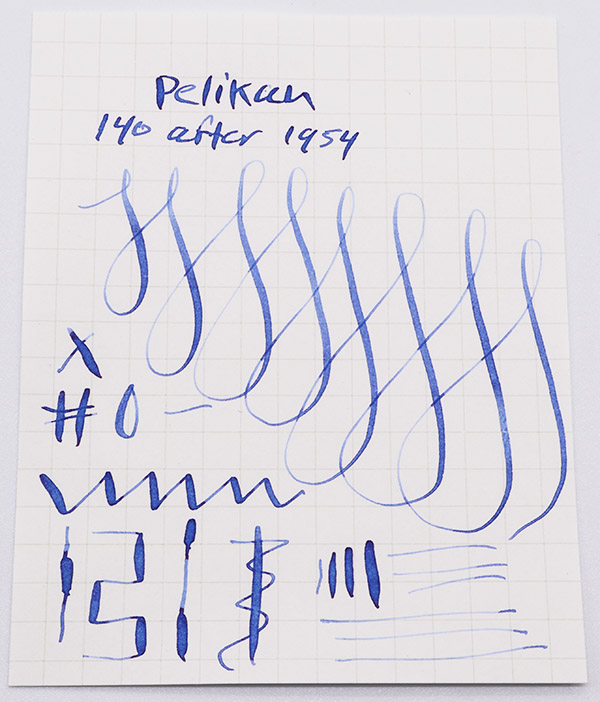 Pelikan
140 after 1954